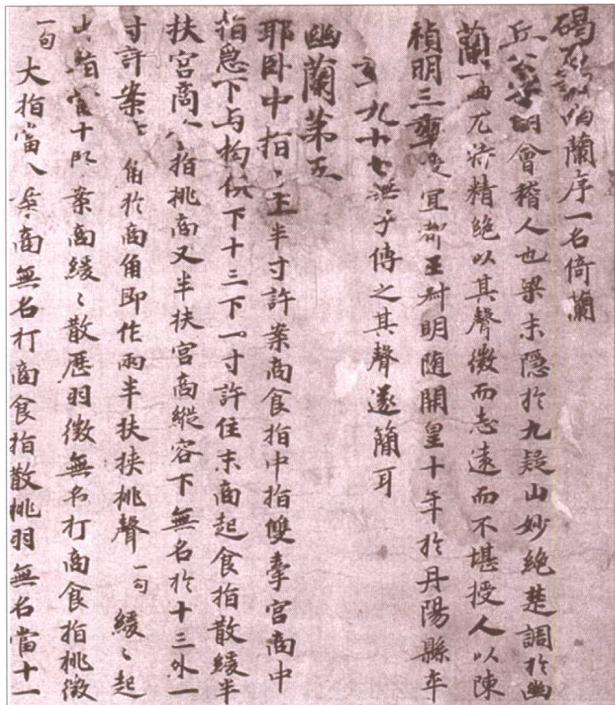 碣石調幽蘭序一名倚蘭
丘公字明會稽人也梁末隱於九疑山妙絕楚調於幽
蘭一曲尤特精絕以其聲微而志遠而不堪授人以陳
禎明三年授宜都王叔明隨開皇十年於丹陽縣卒
九十七無子傳之其聲遂簡耳
幽蘭第五
耶卧中指〻上半寸許案商食指中指雙牽宮商中
指急下与拘俱下十三下一寸許住末商起食指散緩半
扶宮商食指挑商又半扶宮商縱容下無名於十三外一
寸許案商角於商角即作兩半扶挾挑聲一句 緩〻起
指當十案商緩〻散歷羽徵無名打商食指挑徵
一句 大指當八案商無名打商食指散挑羽無名當十一